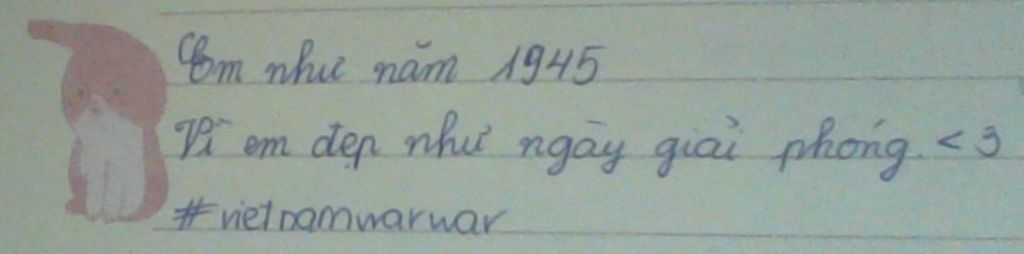 Em như năm 1945
Vì em đẹp như ngày giải phóng. <3
#vietnamwarwar